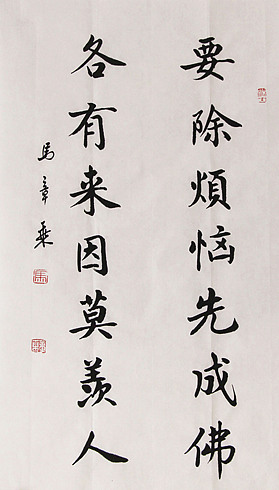 要除煩恼先成佛
各有来因莫羡人
馬章乘